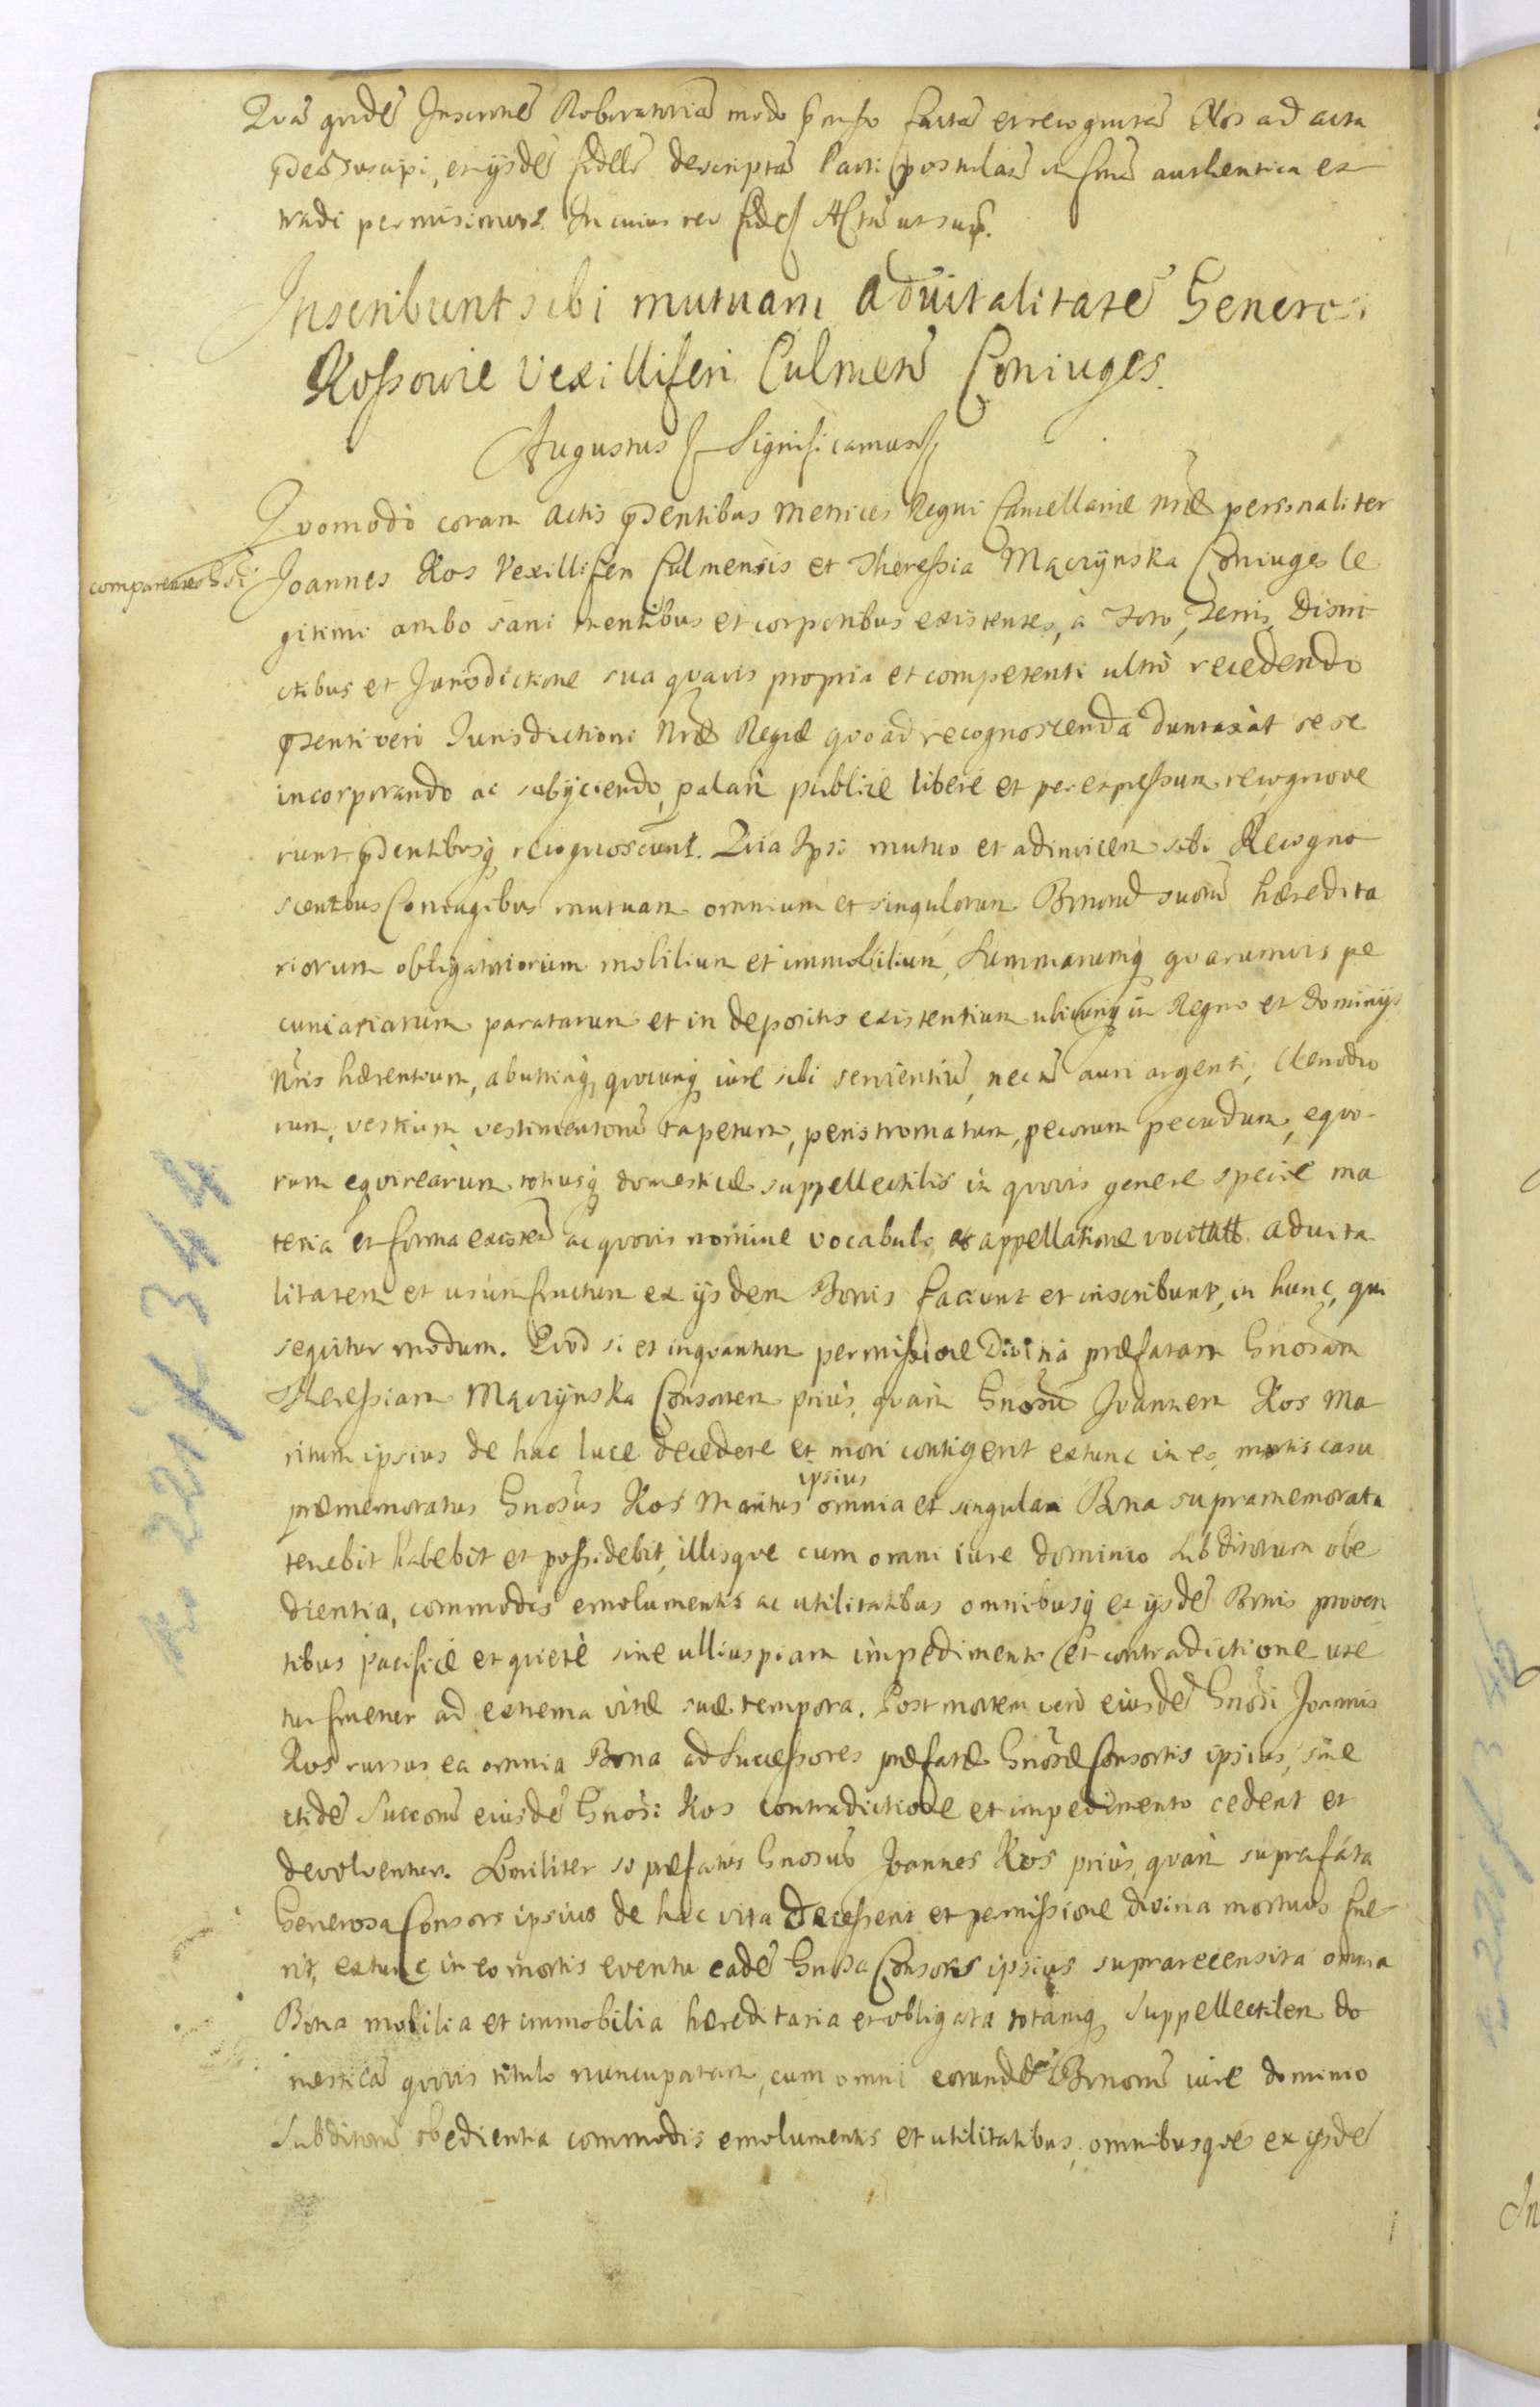 Qva qvidē Inscriōne Roboratoria modo p̄misso facta et recognita Nos ad acta
p̄ntia suscipi, et ijsdē fidelr̄ descripta Parti postulan̄ in forma authentica ex
tradi permisimus. In cuius rei fidē Actū ut supr̄.
Inscribunt sibi mutuam aduitalitatē Generosi
Kossowie Vexilliferi Culmen̄ Coniuges.
Augustus Significamus
Qvomodo coram actis p̄sentibus Metrices Regni Cancellariæ nr̄æ personaliter
comparentes Gsi
Joannes Kos Vexillifer Culmensis et Theressia Mączynska Coniuges le
gitimi ambo sani mentibus et corporibus existentes, a Foro, Terris, Distri
ctibus et Jurisdictione sua qvavis propria et competenti ultro recedendo
p̄senti vero Jurisdictioni Nr̄æ Regiæ qvo ad recognoscenda duntaxat sese
incorporando ac subijciendo, palam publice libere et per expressum recognove
runt p̄sentibusq, recognoscunt. Qvia Ipsi mutuo et adinvicem sibi Recogno
scentibus Coniugibus mutuam omnium et singulorum Bonorū suorū hæredita
riorum obligatoriorum mobilium et immobilium, Summarumq, qvarumvis pe
cuniariarum paratarum et in depositis existentium ubicunq, in Regno et Dominijs
Nr̄is hærentium, ac utriq, qvocunq, iure sibi servientiū, necnō auri argenti, clenodio
rum, vestium vestimentorū tapetum, peristromatum, pecorum pecudum, eqvo-
rum eqvirearum totiusq, domesticæ suppellectilis in qvovis genere specie ma
teria et forma existen̄ ac qvovis nomine vocabulo et appellatione vocitatt aduita
litatem et usumfructum ex ijsdem Bonis faciunt et inscribunt, in hunc, qui
seqvitur modum. Qvod si et inqvantum permissione Divina præfatam Gnosam
Theressiam Mączynska Consortem prius, qvam Gnosū Joannem Kos Ma
ritum ipsius de hac luce decedere et mori contigerit extunc in eo mortis casu
præmemoratus Gnosus Kos Maritus ipsius omnia et singula Bona supramemorata
tenebit habebit et possidebit, illisque cum omni iure dominio subditorum obe
dientia, commodis emolumentis ac utilitatibus omnibusq, ex ijsdē Bonis proven
tibus pacifice et qviete sine ulliuspiam impedimento et contradictione ute
tur fruetur ad extrema vitæ suæ tempora. Post mortem vero eiusdē Gnosi Joannis
Kos rursus ea omnia Bona ad Successores præfatæ Gnosæ Consortis ipsius, sine
itidē Succorū eiusdē Gnosi Kos contradictione et impedimento cedent et
devolventur. Similiter si præfatus Gnosus Joannes Kos prius, qvam suprafata
Generosa Consors ipsius de hac vita decesserit et permissione divina mortuus fue
rit, extunc in eo mortis eventu eadē Gnosa Consors ipsius suprarecensita omnia
Bona mobilia et immobilia hæreditaria et obligata totamq, suppellectilem do
mesticā qvovis titulo nuncupatam, cum omni eorundē Bonorū iure dominio
Subditorū obedientia commodis emolumentis et utilitatibus, omnibusqve ex ijsdē